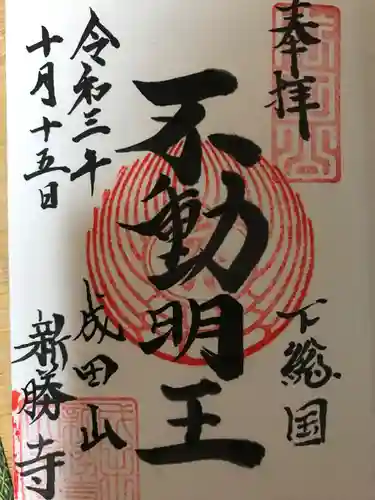 奉拝
下總国
不動明王
令和三年
十月十五日
成田山
新勝寺